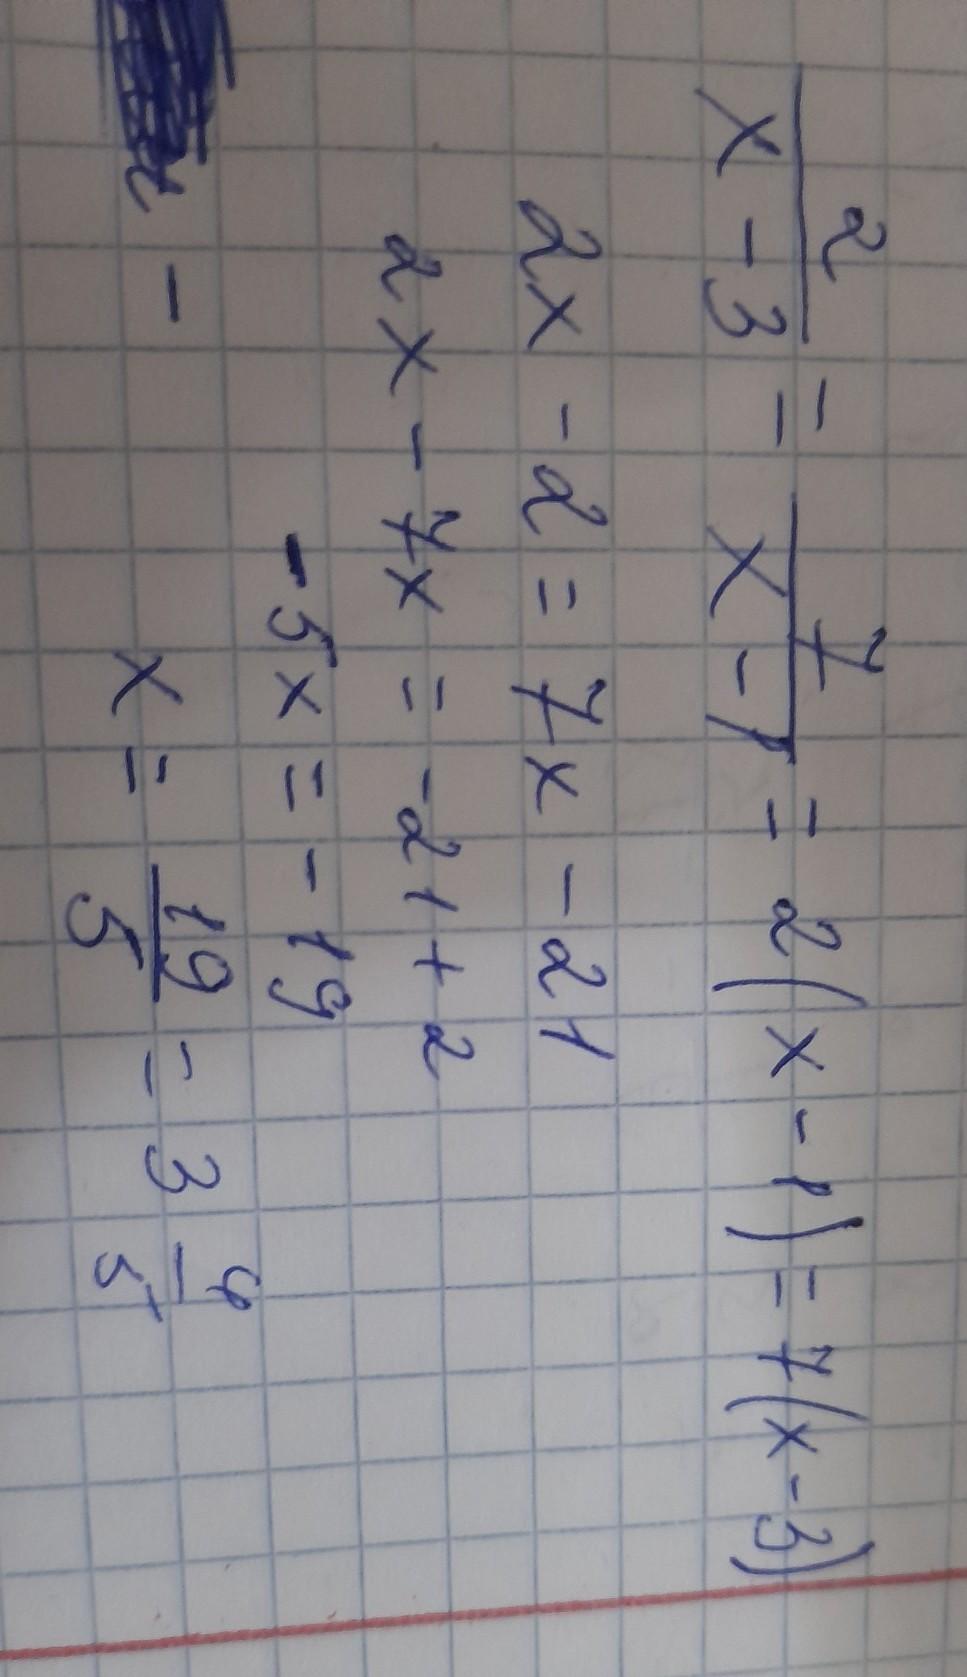 2/(x - 3) = 7/(x - 1) = 2(x - 1) = 7(x - 3)
2x - 2 = 7x - 21
2x - 7x = -21 + 2
-5x = -19
x = 19/5 = 3 4/5